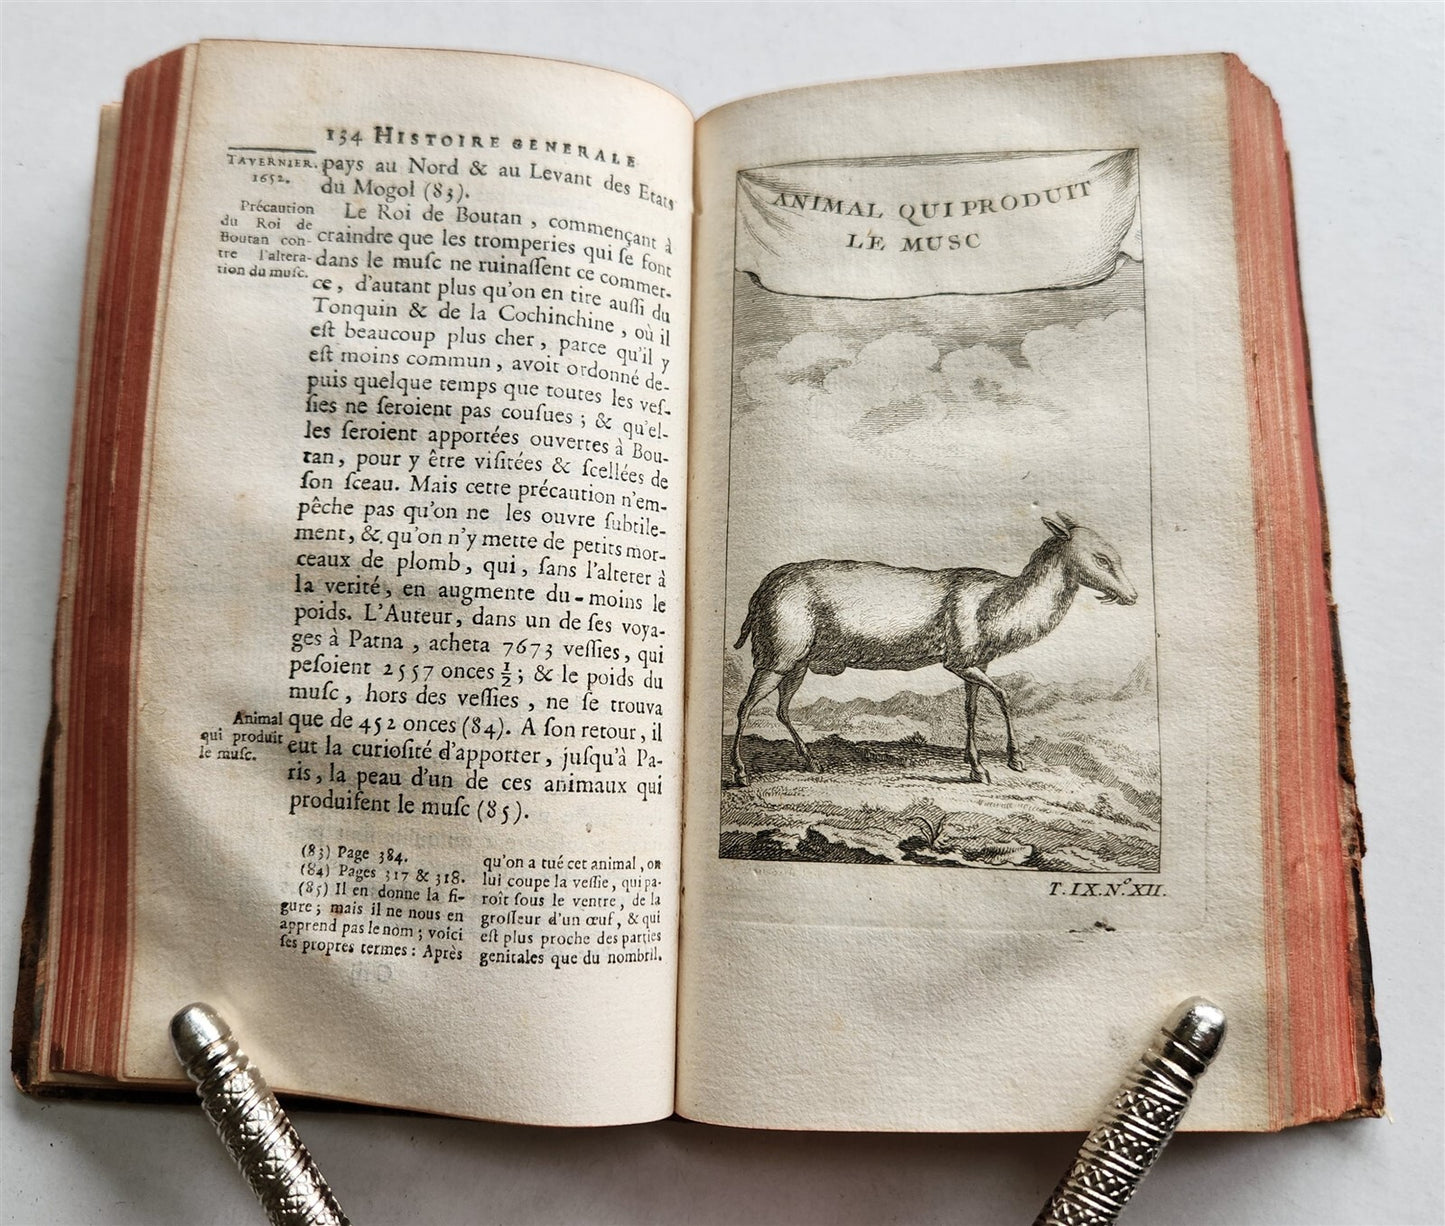 134 HISTOIRE GENERALE
TAVERNIER.
1652.
pays au Nord & au Levant des Etats
du Mogol (83).
Précaution
du Roi de
Boutan con-
tre l'altera-
tion du musc.
Le Roi de Boutan, commençant à
craindre que les tromperies qui se font
dans le musc ne ruinassent ce commer-
ce, d'autant plus qu'on en tire aussi du
Tonquin & de la Cochinchine, où il
est beaucoup plus cher, parce qu'il y
est moins commun, avoit ordonné de-
puis quelque temps que toutes les ves-
sies ne seroient pas cousues; & qu'el-
les seroient apportées ouvertes à Bou-
tan, pour y être visitées & scellées de
son sceau. Mais cette précaution n'em-
pêche pas qu'on ne les ouvre subtile-
ment, & qu'on n'y mette de petits mor-
ceaux de plomb, qui, sans l'alterer à
la verité, en augmente du-moins le
poids. L'Auteur, dans un de ses voya-
ges à Patna, acheta 7673 vessies, qui
pesoient 2557 onces ½; & le poids du
musc, hors des vessies, ne se trouva
que de 452 onces (84). A son retour, il
Animal
qui produit
le musc.
eut la curiosité d'apporter, jusqu'à Pa-
ris, la peau d'un de ces animaux qui
produisent le musc (85).
(83) Page 384.
(84) Pages 317 & 318.
(85) Il en donne la fi-
gure; mais il ne nous en
apprend pas le nom; voici
ses propres termes: Après
qu'on a tué cet animal, on
lui coupe la vessie, qui pa-
roît sous le ventre, de la
grosseur d'un œuf, & qui
est plus proche des parties
genitales que du nombril.
ANIMAL QUI PRODUIT
LE MUSC
T. IX. N.º XII.